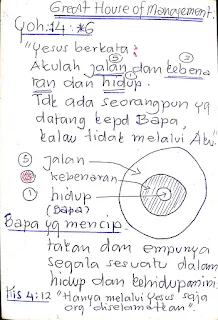 Great House of Management
Yoh:14:*6
"Yesus berkata:
Akulah jalan dan kebena
ran dan hidup.
Tdk ada seorangpun yg
datang kepd Bapa,
kalau tidak melalui Aku."
⑤ jalan
kebenaran
① hidup
(Bapa)
Bapa yg mencip-
takan dan empunya
segala sesuatu dalam
hidup dan kehidupan ini
Kis 4:12 "Hanya melalui Yesus saja
org diselamatkan".